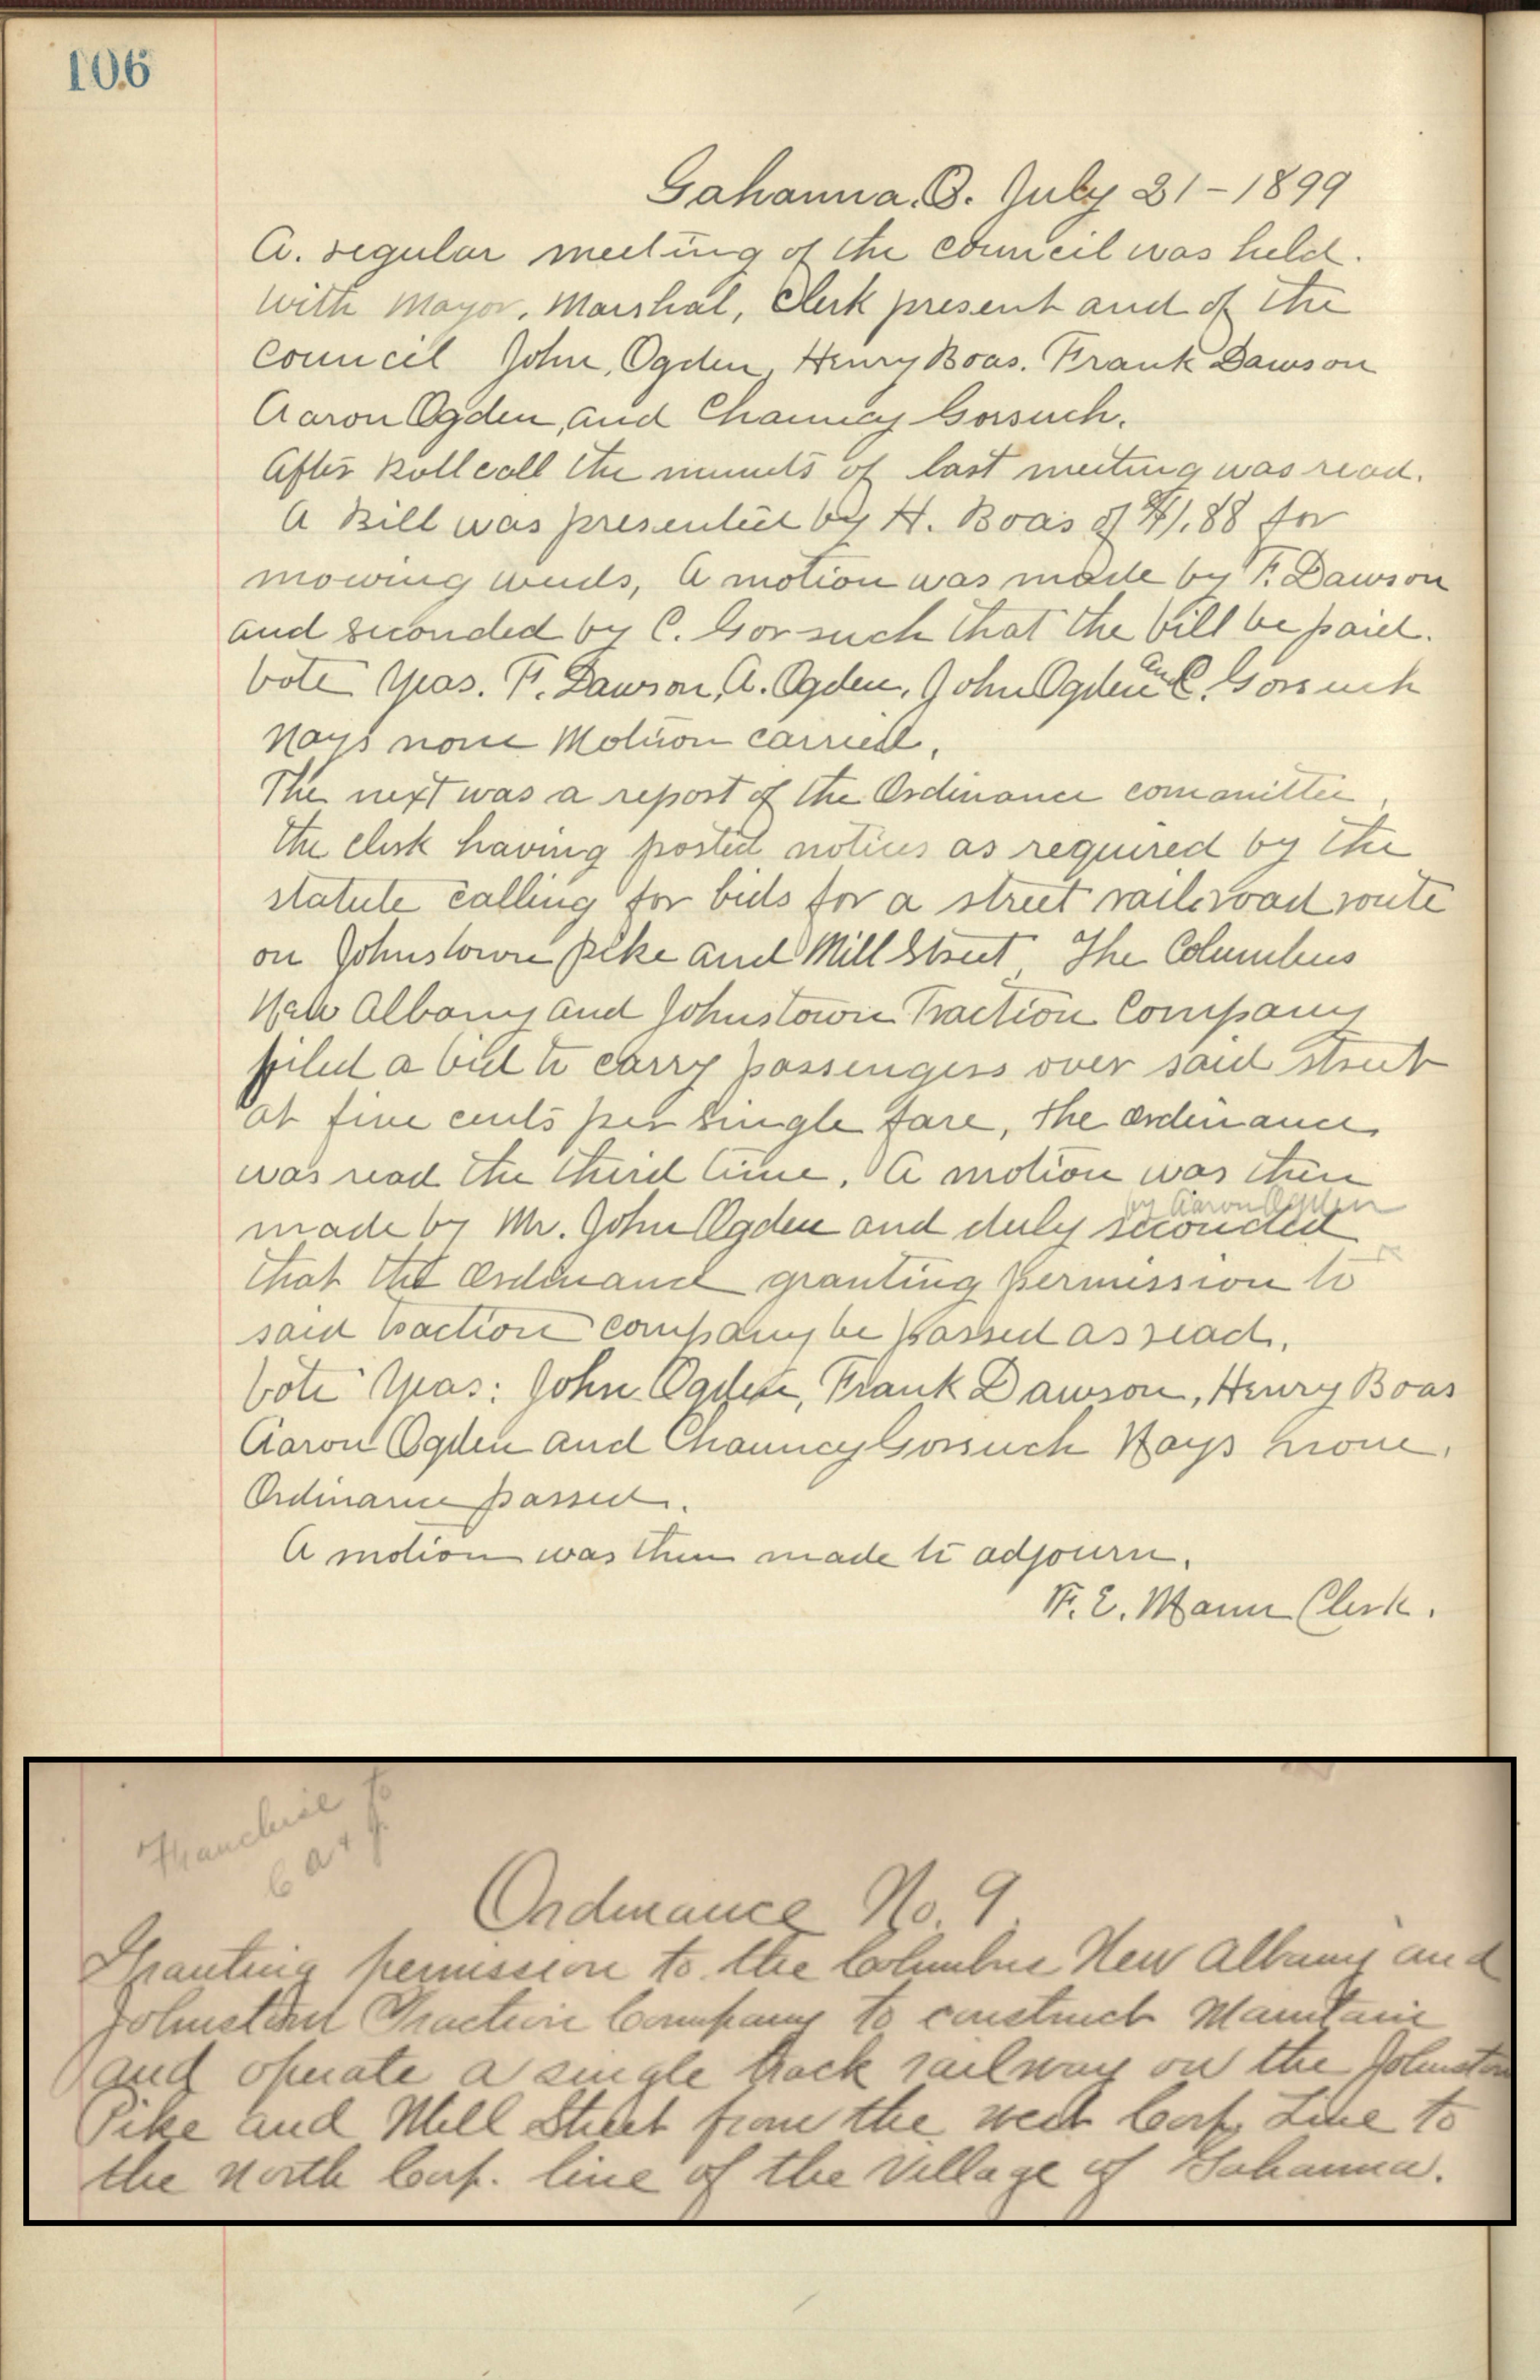 106
Gahanna, O. July 21-1899
A. regular meeting of the council was held.
with Mayor, Marshal, Clerk present and of the
council John, Ogden, Henry Boas. Frank Dawson
Aaron Ogden, and Chauncy Gorsuch.
After Roll call the minuts of last meeting was read.
A Bill was presented by H. Boas of $1.88 for
mowing weeds, A motion was made by F. Dawson
and seconded by C. Gorsuch that the bill be paid.
vote Yeas. F. Dawson, A. Ogden, John Ogden and C. Gorsuch
Nays none Motion carried,
The next was a report of the Ordinance committee,
the clerk having posted notices as required by the
statute calling for bids for a street railroad route
on Johnstown pike and Mill Street, The Columbus
New Albany and Johnstown Traction Company
filed a bid to carry passengers over said street
at five cents per single fare, the ordinance
was read the third time. A motion was then
by Aaron Ogden
made by Mr. John Ogden and duly seconded
that the ordinance granting permission to
said traction company be passed as read,
vote Yeas: John Ogden, Frank Dawson, Henry Boas
Aaron Ogden and Chauncy Gorsuch Nays none.
Ordinance passed.
A motion was then made to adjourn.
F. E. Mann Clerk.
Franchise to
C A & J.
Ordinance No. 9.
Granting permission to the Columbus New Albany and
Johnstown Traction Company to construct Maintain
and operate a single track railway on the Johnstown
Pike and Mill Street from the west Corp. Line to
the north Corp. line of the Village of Gahanna.